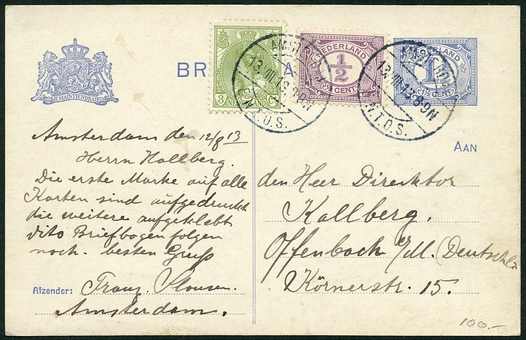 BR A
3 CENT
NEDERLAND
½
CENT
NEDERLAND
1
CENT
AMSTERDAM
13.VIII.13.8-9N
E.N.T.O.S.
AMSTERDAM
13.VIII.13.8-9N
E.N.T.O.S.
AAN
Amsterdam den 12/8 13
Herrn Kallberg.
Die erste Marke auf alle
Karten sind aufgedruckt
die weitere aufgeklebt
dito Briefbogen folgen
noch. besten Gruß
Afzender: Franz
Amsterdam.
den Heer Direktor
Kallberg.
Offenbach a/M. (Deutschld
Körnerstr. 15.
100.-